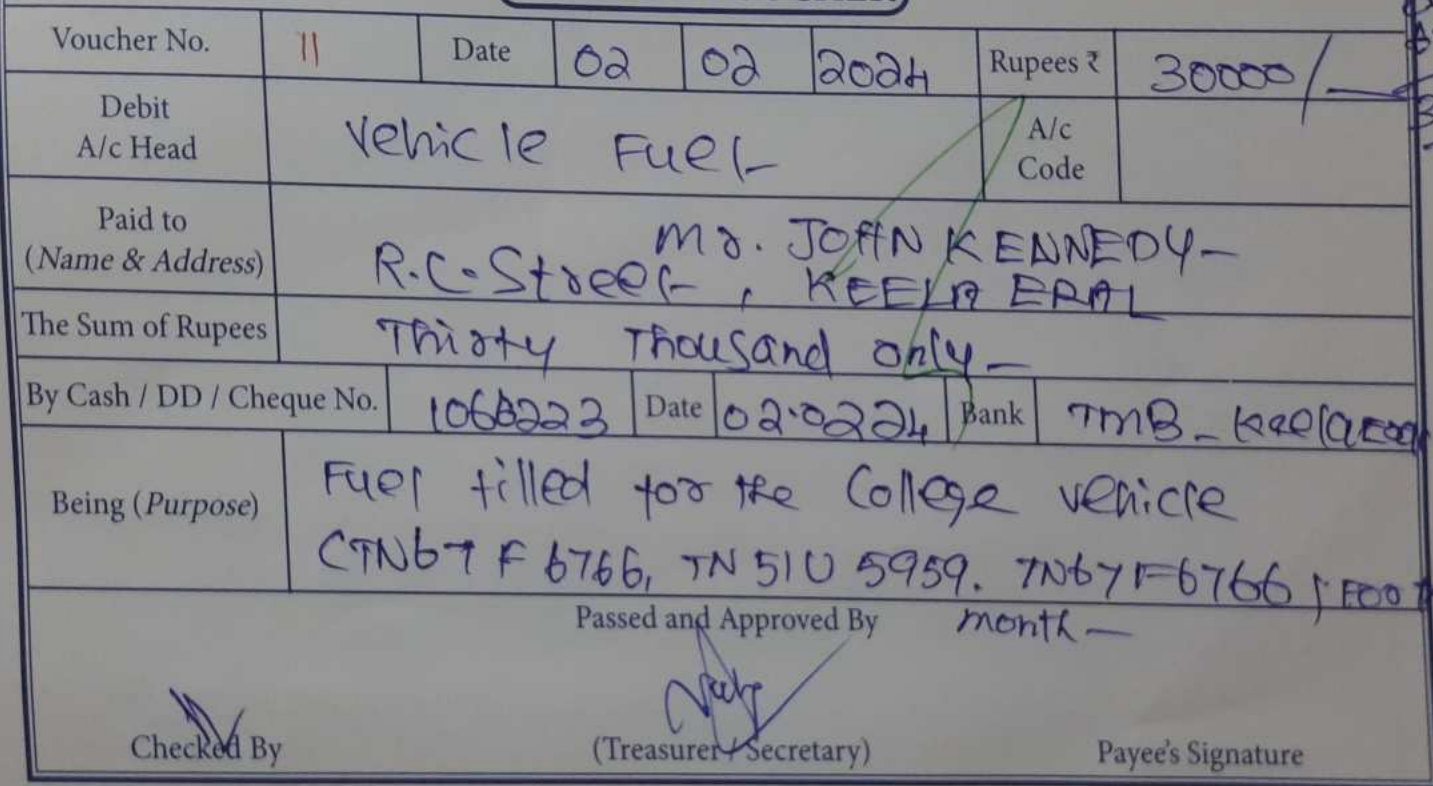 Voucher No. 11 Date 02 02 2024 Rupees ₹ 30000/-
Debit A/c Head Vehicle Fuel A/c Code
Paid to (Name & Address) Mr. JOHN KENNEDY -
R.C. Street, KEELA ERAL
The Sum of Rupees Thirty Thousand only -
By Cash / DD / Cheque No. Date 02.0224 Bank TMB - 
Being (Purpose) Fuel filled for the College vehicle
CTN67 F 6766, TN 51U 5959. TN67F6766
Passed and Approved By month -
Checked By (Treasurer / Secretary) Payee's Signature